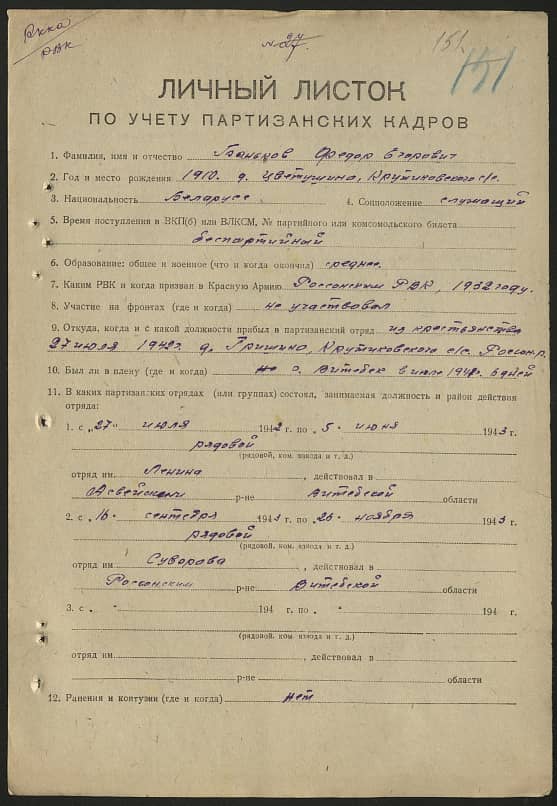 РККА
РВК
№ 27
151.
151
ЛИЧНЫЙ ЛИСТОК
ПО УЧЕТУ ПАРТИЗАНСКИХ КАДРОВ
1. Фамилия, имя и отчество Ганьков Федор Егорович
2. Год и место рождения 1910. д. Цветушино, Крутиковского с/с.
3. Национальность Беларусс 4. Соцположение служащий
5. Время поступления в ВКП(б) или ВЛКСМ, № партийного или комсомольского билета
беспартийный
6. Образование: общее и военное (что и когда окончил) среднее.
7. Каким РВК и когда призван в Красную Армию Россонским РВК, 1932 году.
8. Участие на фронтах (где и когда) не участвовал
9. Откуда, когда и с какой должности прибыл в партизанский отряд из крестьянства
27 июля 1942 г. д. Гришино, Крутиковского с/с. Россон.р.
10. Был ли в плену (где и когда) г. Витебск в июле 194 6 дней
11. В каких партизанских отрядах (или группах) состоял, занимаемая должность и район действия
отряда:
1. с „27“ июля 1942 г. по „5“ июня 1943 г.
рядовой
(рядовой, ком. взвода и т. д.)
отряд им. Ленина, действовал в
Освейском р-не Витебской области
2. с „16“ сентября 1943 г. по „26“ ноября 1943 г.
рядовой
(рядовой, ком. взвода и т. д.)
отряд им. Суворова, действовал в
Россонским р-не Витебской области
3. с „ “ 194 г. по „ “ 194 г.
(рядовой, ком. взвода и т. д.)
отряд им. , действовал в
р-не области
12. Ранения и контузии (где и когда) нет